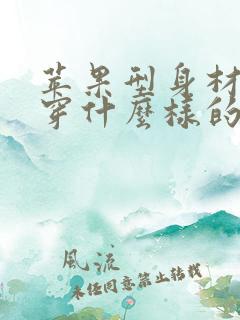 苹果型身材
穿什麼樣的
風流
未经同意禁止转载